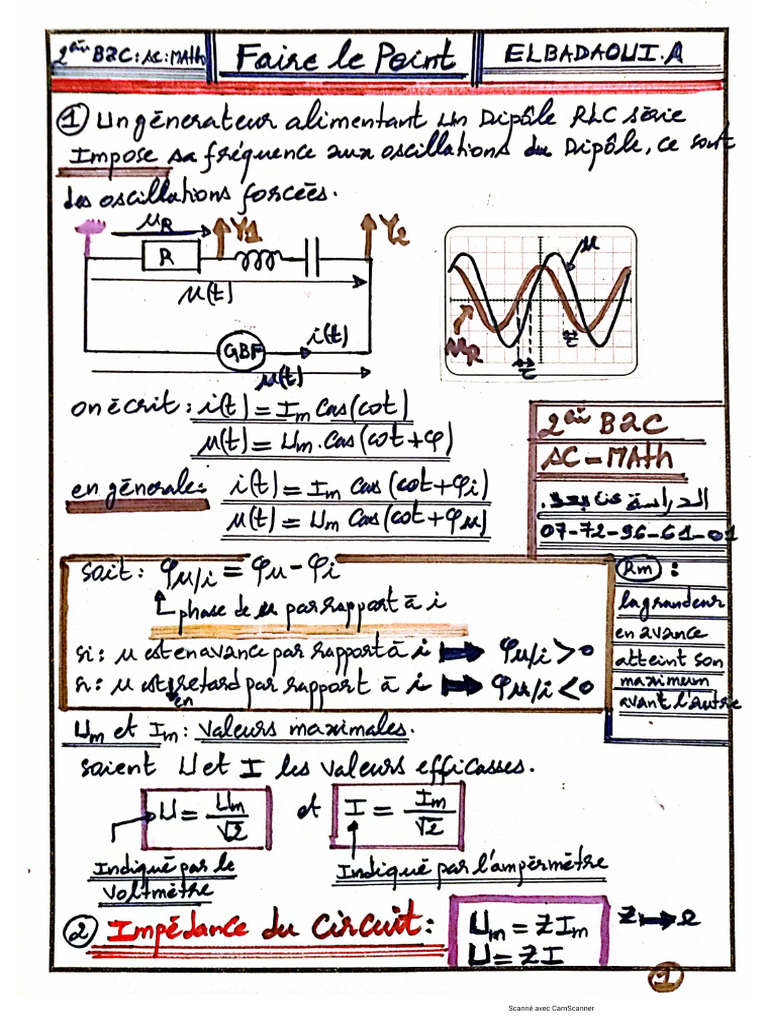 2ème B2C: SC: MATH
Faire le Point
ELBADAOUI.A
① Un génerateur alimentant un Dipôle RLC série
Impose sa fréquence aux oscillations du Dipôle, ce sont
des oscillations forcées.
uR
Y1
Y2
R
u(t)
GBF
i(t)
u(t)
u
uR
τ
τ
on écrit : i(t) = Im Cos(ωt)
u(t) = Um. Cos(ωt+φ)
en génerale: i(t) = Im Cos(ωt+φi)
u(t) = Um Cos(ωt+φu)
2ème B2C
SC-MATH
الدراسة عن بعد.
07-72-96-61-01
soit: φu/i = φu - φi
phase de u par rapport à i
si: u est en avance par rapport à i ➡ φu/i > 0
si: u est en retard par rapport à i ➡ φu/i < 0
Rm :
la grandeur
en avance
atteint son
maximum
avant l'autre
Um et Im : valeurs maximales.
soient U et I les valeurs efficasses.
U = Um/√2 et I = Im/√2
Indiqué par le
voltmètre
Indiqué par l'ampèrmètre
② Impédance du circuit :
Um = Z Im
U = Z I
Z ➡ Ω
①
Scanné avec CamScanner